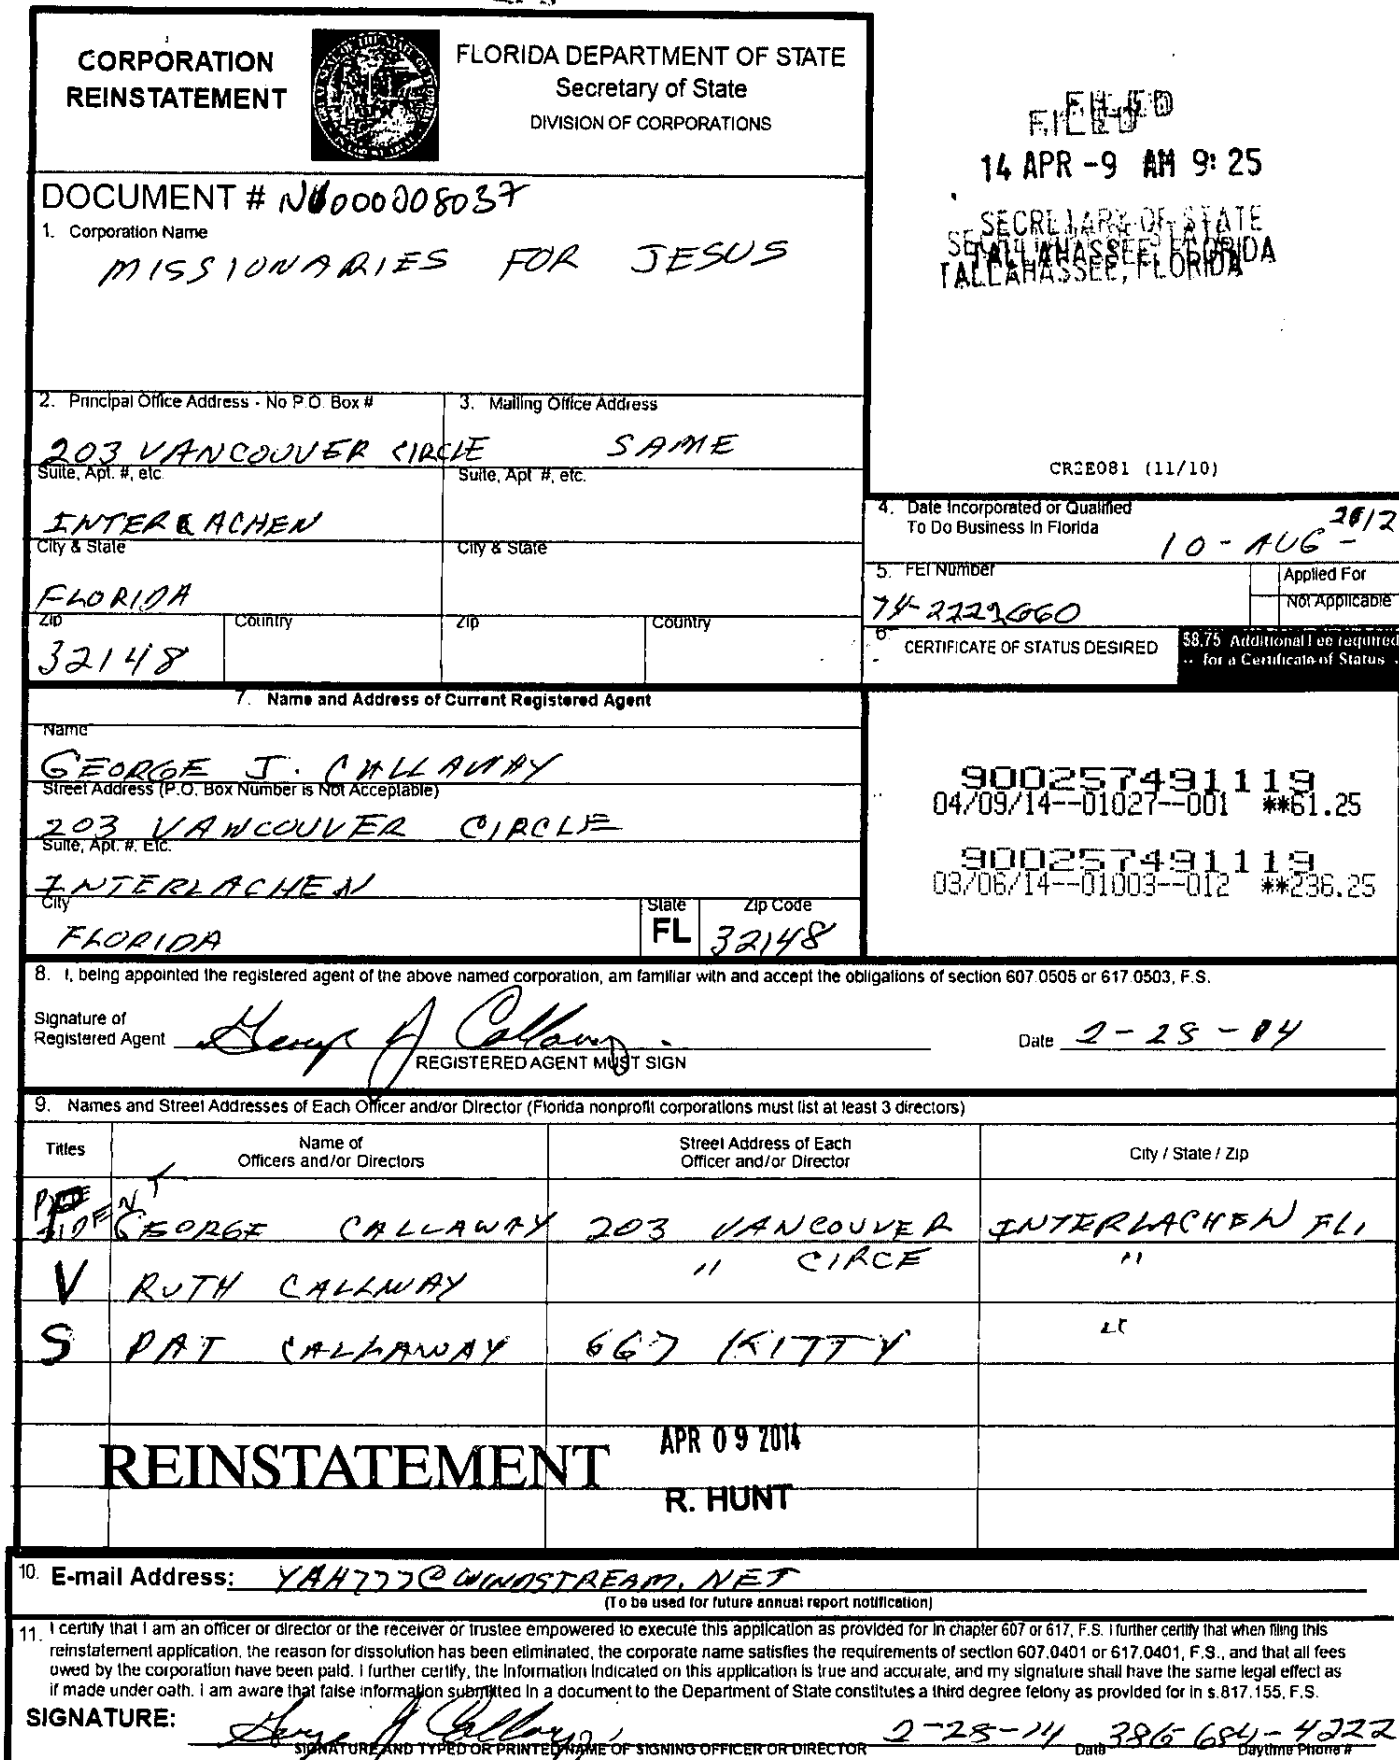 CORPORATION
REINSTATEMENT
FLORIDA DEPARTMENT OF STATE
Secretary of State
DIVISION OF CORPORATIONS
FILED
14 APR -9 AM 9:25
SECRETARY OF STATE
TALLAHASSEE, FLORIDA
DOCUMENT #
1. Corporation Name
MISSIONARIES FOR JESUS
CR2E081 (11/10)
2. Principal Office Address - No P.O. Box #
3. Mailing Office Address
203 VANCOUVER CIRCLE
SAME
Suite, Apt. #, etc.
Suite, Apt. #, etc.
INTERLACHEN
City & State
City & State
FLORIDA
Zip
Country
Zip
Country
32148
4. Date Incorporated or Qualified
To Do Business In Florida
10-AUG-2012
5. FEI Number
74-2222660
Applied For
Not Applicable
6. CERTIFICATE OF STATUS DESIRED
$8.75 Additional Fee required
-- for a Certificate of Status
7. Name and Address of Current Registered Agent
Name
GEORGE J. CALLAWAY
Street Address (P.O. Box Number is Not Acceptable)
203 VANCOUVER CIRCLE
Suite, Apt. #. Etc.
INTERLACHEN
City
State
Zip Code
FLORIDA
FL
32148
900257491119
04/09/14--01027--001 **61.25
900257491119
03/06/14--01003--012 **236.25
8. I, being appointed the registered agent of the above named corporation, am familiar with and accept the obligations of section 607.0505 or 617.0503, F.S.
Signature of
Registered Agent George J Callaway
Date 2-28-14
REGISTERED AGENT MUST SIGN
9. Names and Street Addresses of Each Officer and/or Director (Florida nonprofit corporations must list at least 3 directors)
Titles
Name of
Officers and/or Directors
Street Address of Each
Officer and/or Director
City / State / Zip
P PRESIDENT GEORGE CALLAWAY 203 VANCOUVER INTERLACHEN FL,
V RUTH CALLAWAY " CIRCE "
S PAT CALLAWAY 667 KITTY "
REINSTATEMENT
APR 09 2014
R. HUNT
10. E-mail Address: YAH777@WINDSTREAM.NET
(To be used for future annual report notification)
11. I certify that I am an officer or director or the receiver or trustee empowered to execute this application as provided for in chapter 607 or 617, F.S. I further certify that when filing this
reinstatement application, the reason for dissolution has been eliminated, the corporate name satisfies the requirements of section 607.0401 or 617.0401, F.S., and that all fees
owed by the corporation have been paid. I further certify, the information indicated on this application is true and accurate, and my signature shall have the same legal effect as
if made under oath. I am aware that false information submitted in a document to the Department of State constitutes a third degree felony as provided for in s.817.155, F.S.
SIGNATURE: George J Callaway 2-28-14 386 684-4222
SIGNATURE AND TYPED OR PRINTED NAME OF SIGNING OFFICER OR DIRECTOR
Date
Daytime Phone #